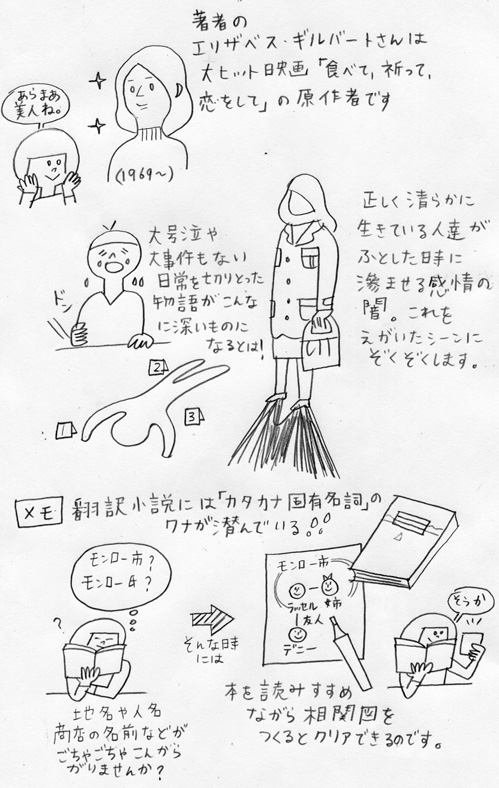 著者の
エリザベス・ギルバートさんは
大ヒット映画「食べて,祈って,
恋をして」の原作者です
あらまあ
美人ね。
(1969〜)
大号泣や
大事件もない
日常を切りとった
物語がこんな
に深いものに
なるとは!
ドン
1
2
3
正しく清らかに
生きている人達が
ふとした時に
滲ませる感情の
闇。これを
えがいたシーンに
ぞくぞくします。
メモ
翻訳小説には「カタカナ固有名詞」の
ワナが潜んでいる!!
モンロー市?
モンロー&?
?
地名や人名
商店の名前などが
ごちゃごちゃこんがら
がりませんか?
そんな時
には
モンロー市
ラッセル 姉
友人
デニー
そうか
本を読みすすめ
ながら相関図を
つくるとクリアできるのです。